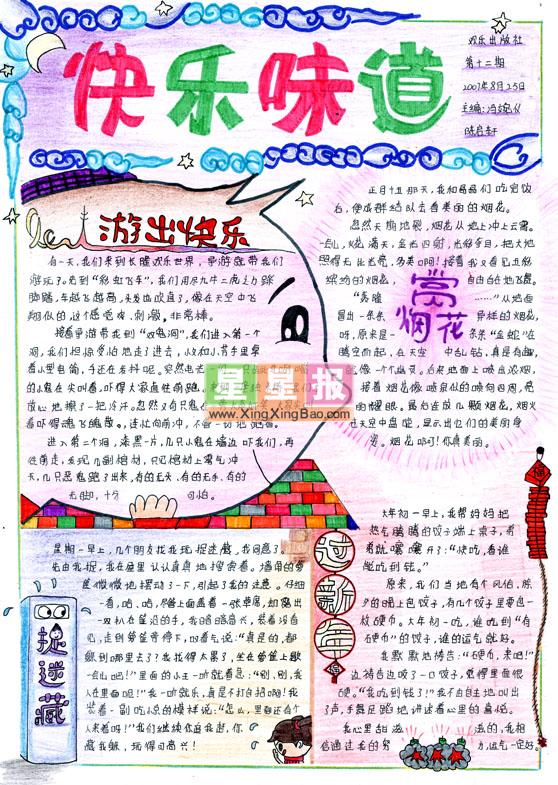 快乐味道
欢乐出版社
第十二期
2007年8月25日
主编:冯婉仪
陈启轩
游出快乐
有一天,我们来到长隆欢乐世界,导游就带我们
游玩了。先到“彩虹飞车”,我们用尽九牛二虎之力踩
脚踏,车越飞越高,头发也吹直了,像在天空中飞
翔似的,这个感觉戏,刺激,非常棒。
接着导游带我到“双龟洞”,我们进入第一个
洞,我们担惊受怕地走了进去,
看小里电筒,手还在发抖呢。突然
的小鬼在尖叫着,吓得大家直往前跑。
放心地擦了一把冷汗。忽然又有只鬼
看吓得魂飞魄散,连忙向前冲,不管一切地跑着。
进入第二个洞,漆黑一片,几只小鬼在墙边吓我们,再
往前走,发现几副棺材,只见棺材上雾气冲
天,几只恶鬼跑了出来,有的无头、有的无手、有的
无脚,十分可怕。
赏烟花
正月十五那天,我和爸爸们吃完饭
后,便成群结队去看美丽的烟花。
忽然天动地裂,烟花从地上冲上云霄。
一会儿,火花满天,金光四射,光够夺目,把大地
照得无比光亮,多美口啊!接着我又看见五彩
缤纷的烟花,自由自在地飞着。
“轰隆……”从地面
冒出一条条异样的烟花,
呀,原来是一条条“金蛇”在
腾空而起,在天空中乱钻,真是有趣,
接着烟花像喷泉似的喷向四周,是
的耀眼。最后在放几颗烟花,烟火
在天空中盘绽,显示出他们的美丽身
姿。烟花啊!你真美丽。
星星报
www.XingXingBao.com
捉迷藏
星期一早上,几个朋友找我玩捉迷藏,我同意了。
先由我捉,我在屋里认认真真地搜索着。墙角的箩
筐微微地摆动了一下,引起了我的注意。仔细
一看,哈、哈,箩筐上面盖着一张草席,如露出
一双扒在筐沿的手,我暗暗高兴,装着没看
见,走到箩筐旁停下,叫着气说:“真是的,都
躲到哪里去了?我找得太累了,坐在箩筐上歇
一会儿吧!”里面的小王一听就着急:“别,别,我
人在里面呢!”我一听就乐,真是不打自招啊!我
装着一副吃惊的模样说:“怎么,里面还有个
人来着啊!”我们继续你追我赶,你
藏我躲,玩得可高兴!
过新年
大年初一早上,我帮妈妈把
热气腾腾的饺子端上桌子,看
着就嚷嚷开了:“快吃,看谁
能吃到钱。”
原来,我们当地有个风俗,除
夕的晚上包饺子,有几个饺子里要包一
枚硬币。大年初一吃,谁吃到“有
石硬币”的饺子,谁的运气就好。
我默默地祷告:“硬币,来吧!”
边祷告边咬了一口饺子,觉得里面很
硬。“我吃到钱了!”我不自主地叫出
了声,手舞足蹈地讲述着心里的喜悦。
我心里甜滋滋的,我相
信通过我的努力,运气一定好。